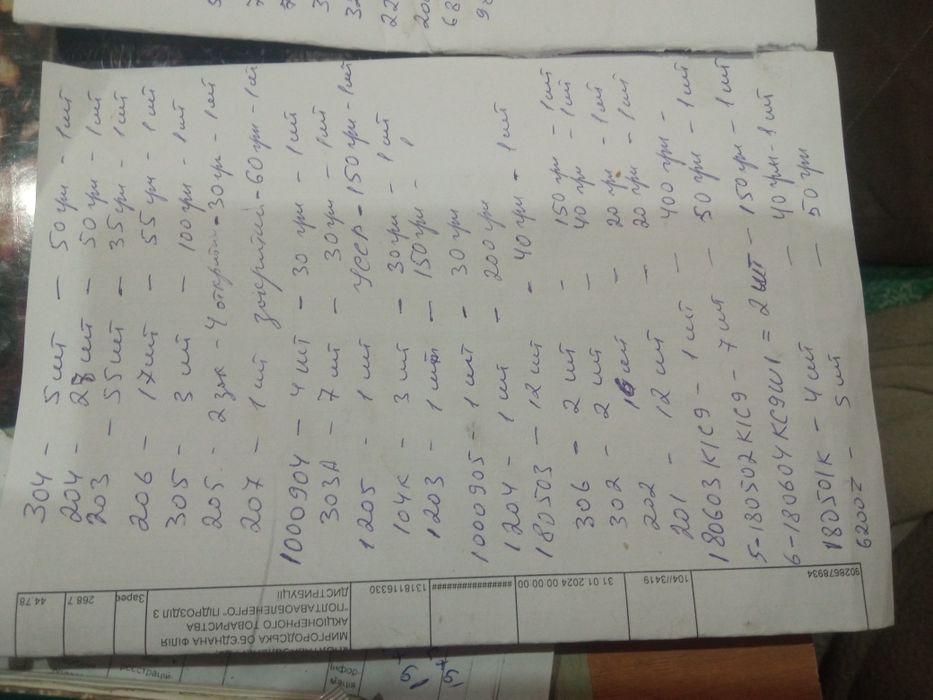 304 - 5 шт - 50 грн - 1 шт
204 - 28 шт - 50 грн - 1 шт
203 - 55 шт - 35 грн - 1 шт
206 - 17 шт - 55 грн - 1 шт
305 - 3 шт - 100 грн - 1 шт
205 - 2 зак - 4 открити - 30 грн - 1 шт
207 - 1 шт закритий - 60 грн - 1 шт
1000904 - 4 шт - 30 грн - 1 шт
303А - 7 шт - 30 грн - 1 шт
1205 - 1 шт УССР - 150 грн - 1 шт
104к - 3 шт - 30 грн - 1 шт
1203 - 1 шт - 150 грн - 1
1000905 - 1 шт - 30 грн
1204 - 1 шт - 200 грн
180503 - 12 шт - 40 грн - 1 шт
306 - 2 шт - 150 грн - 1 шт
302 - 2 шт - 40 грн - 1 шт
202 16 шт - 20 грн - 1 шт
201 - 12 шт - 20 грн - 1 шт
180603 К1С9 - 1 шт - 400 грн -
5-180502 К1С9 - 7 шт - 50 грн - 1 шт
6-180604КС9Ш1 = 2 шт - 150 грн - 1 шт
180501К - 4 шт - 40 грн - 1 шт
6200Z - 5 шт - 50 грн
44.78
268.7
Зарес
МИРГОРОДСЬКА ОБ'ЄДНАНА ФІЛІЯ
АКЦІОНЕРНОГО ТОВАРИСТВА
"ПОЛТАВАОБЛЕНЕРГО" ПІДРОЗДІЛ З
ДИСТРИБУЦІЇ
1318116330
################
31 01 2024 00 00 00
104//3419
9028678934